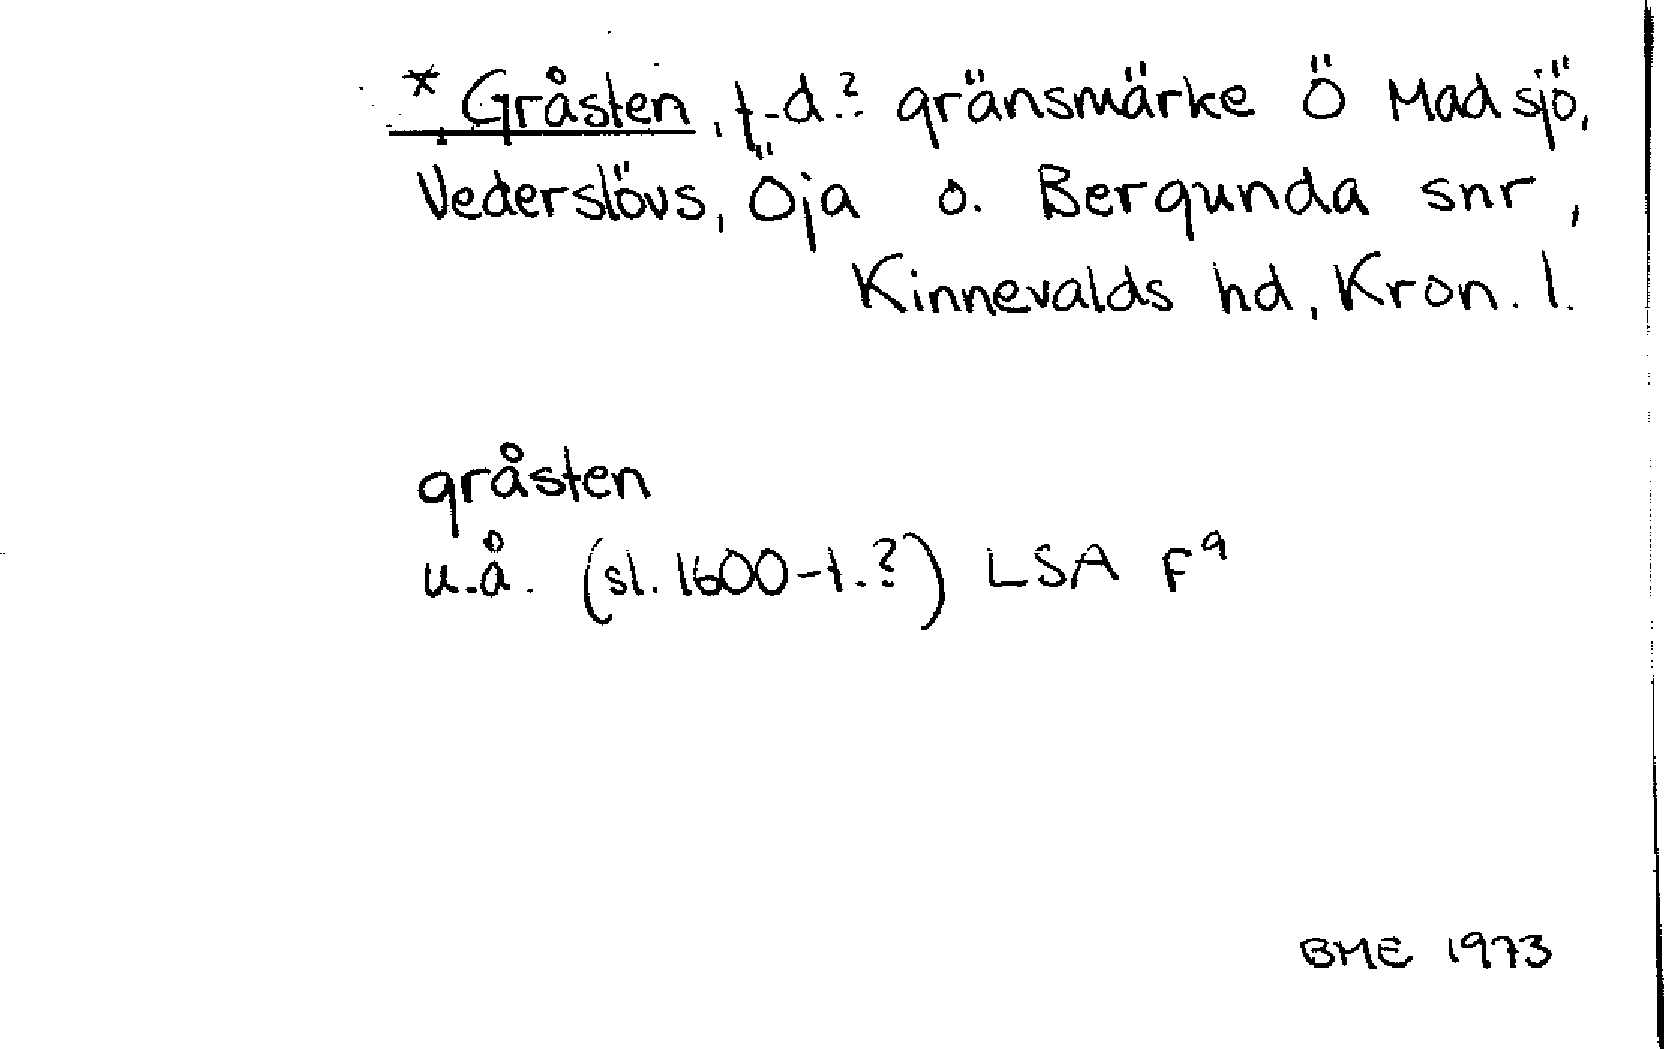 * Gråsten, f.d.? gränsmärke Ö Madsjö,
Vederslövs, Öja o. Bergunda snr,
Kinnevalds hd, Kron. l.
gråsten
u.å. (sl. 1600-t.?) LSA F⁹
BME 1973